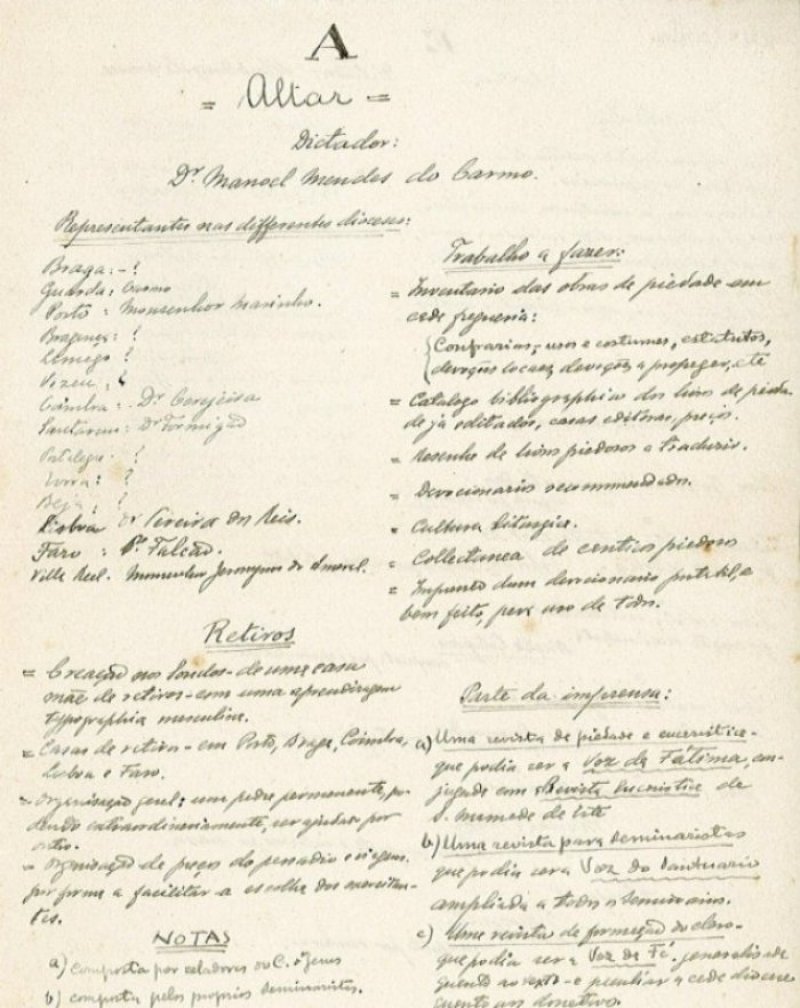 A
= Altar =
Dictador:
Dr Manoel Mendes do Carmo.
Representantes nas differentes dioceses:
Braga: - ?
Guarda: Carmo
Porto: Monsenhor Marinho.
Bragança: ?
Lamego ?
Vizeu: ?
Coimbra: Dr Cerejeira
Santarem: Dr Formigão
Portalegre: ?
Evora: ?
Beja: ?
Lisboa Dr Pereira dos Reis.
Faro: Pe Falcão.
Villa Real. Monsenhor Jeronymo do Amaral.
Retiros
= Creação nos -de uma casa
mãe de retiros-com uma aprendizagem
typographia masculina.
= Casas de retiro-em Porto, Braga, Coimbra,
Lisboa e Faro.
= Organisação geral: um padre permanente, po-
dendo extraordinariamente, ser ajudado por
outro.
= Organisação de preços do passadio e viagens
por forma a facilitar a escolha dos exercitan-
tes.
NOTAS
a) composta por zeladores do C. de Jesus
b) composta pelos proprios seminaristas.
Trabalho a fazer:
= Inventario das obras de piedade em
cada freguesia:
{Confrarias, usos e costumes, estatutos,
devoções locaes, devoções a propagar, etc
= Catalogo bibliographico dos livros de pieda-
de já editados, casas editoras, preços.
= Resenha de livros piedosos a traduzir.
= Devocionarios recommendados.
= Cultura Liturgica.
= Collectanea de canticos piedosos
= Impressão dum devocionario portatil, e
bem feito, para uso de todos.
Parte da imprensa:
a) Uma revista de piedade e eucaristica-
que podia ser a Voz da Fátima, con-
jugada com a Revista Eucaristica de
S. Mamede de Este
b) Uma revista para seminaristas
que podia ser a Voz do Santuario
ampliada a todos os seminarios.
c) Uma revista de formação do clero-
que podia ser a Voz da Fé, generalisada
quanto ao texto-e peculiar a cada diocese
quanto aos donativos.